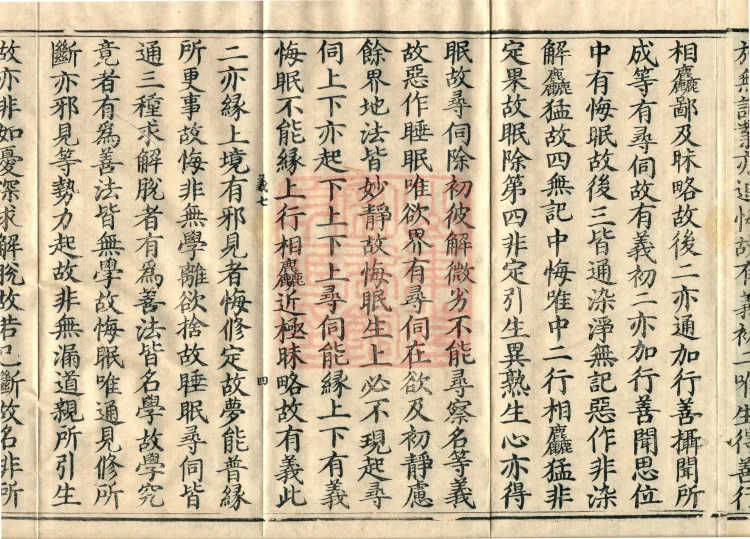 於無記業亦追悔故有義初二唯生得善行
相麤鄙及昧略故後二亦通加行善攝聞所
成等有尋伺故有義初二亦加行善聞思位
中有悔眠故後三皆通染淨無記惡作非染
解麤猛故四無記中悔唯中二行相麤猛非
定果故眠除第四非定引生異熟生心亦得
眠故尋伺除初彼解微劣不能尋察名等義
故惡作睡眠唯欲界有尋伺在欲及初靜慮
餘界地法皆妙靜故悔眠生上必不現起尋
伺上下亦起下上下上尋伺能緣上下有義
悔眠不能緣上行相麤近極昧略故有義此
義七 四
二亦緣上境有邪見者悔修定故夢能普緣
所更事故悔非無學離欲捨故睡眠尋伺皆
通三種求解脫者有爲善法皆名學故學究
竟者有爲善法皆無學故悔眠唯通見修所
斷亦邪見等勢力起故非無漏道親所引生
故亦非如憂深求解脫故若已斷故名非所